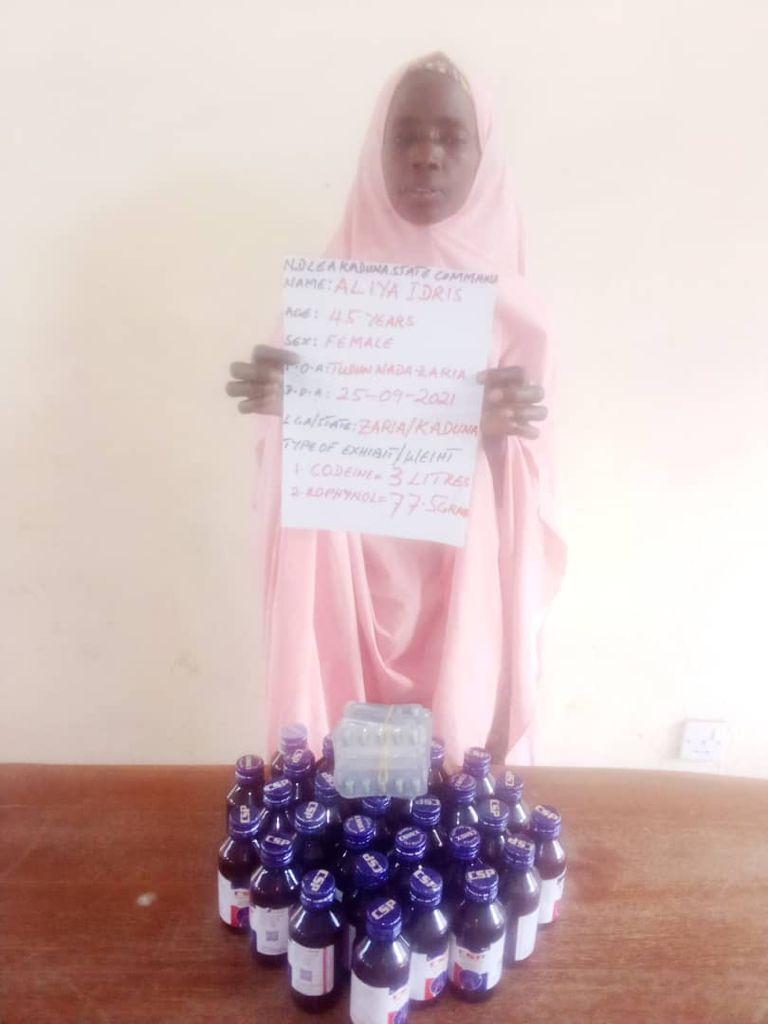 N.D.L.E.A KADUNA STATE COMMAND
NAME: ALIYA IDRIS
AGE: 45 YEARS
SEX: FEMALE
P.O.A: TUDUN WADA-ZARIA
D.O.A: 25-09-2021
LGA/STATE: ZARIA/KADUNA
TYPE OF EXHIBIT/WEIHT
1. CODEINE = 3 LITRES
2. ROPHYNOL = 77.5GRAM
CSP
CSP
CSP
CSP
CSP
CSP
CSP
CSP
CSP
CSP